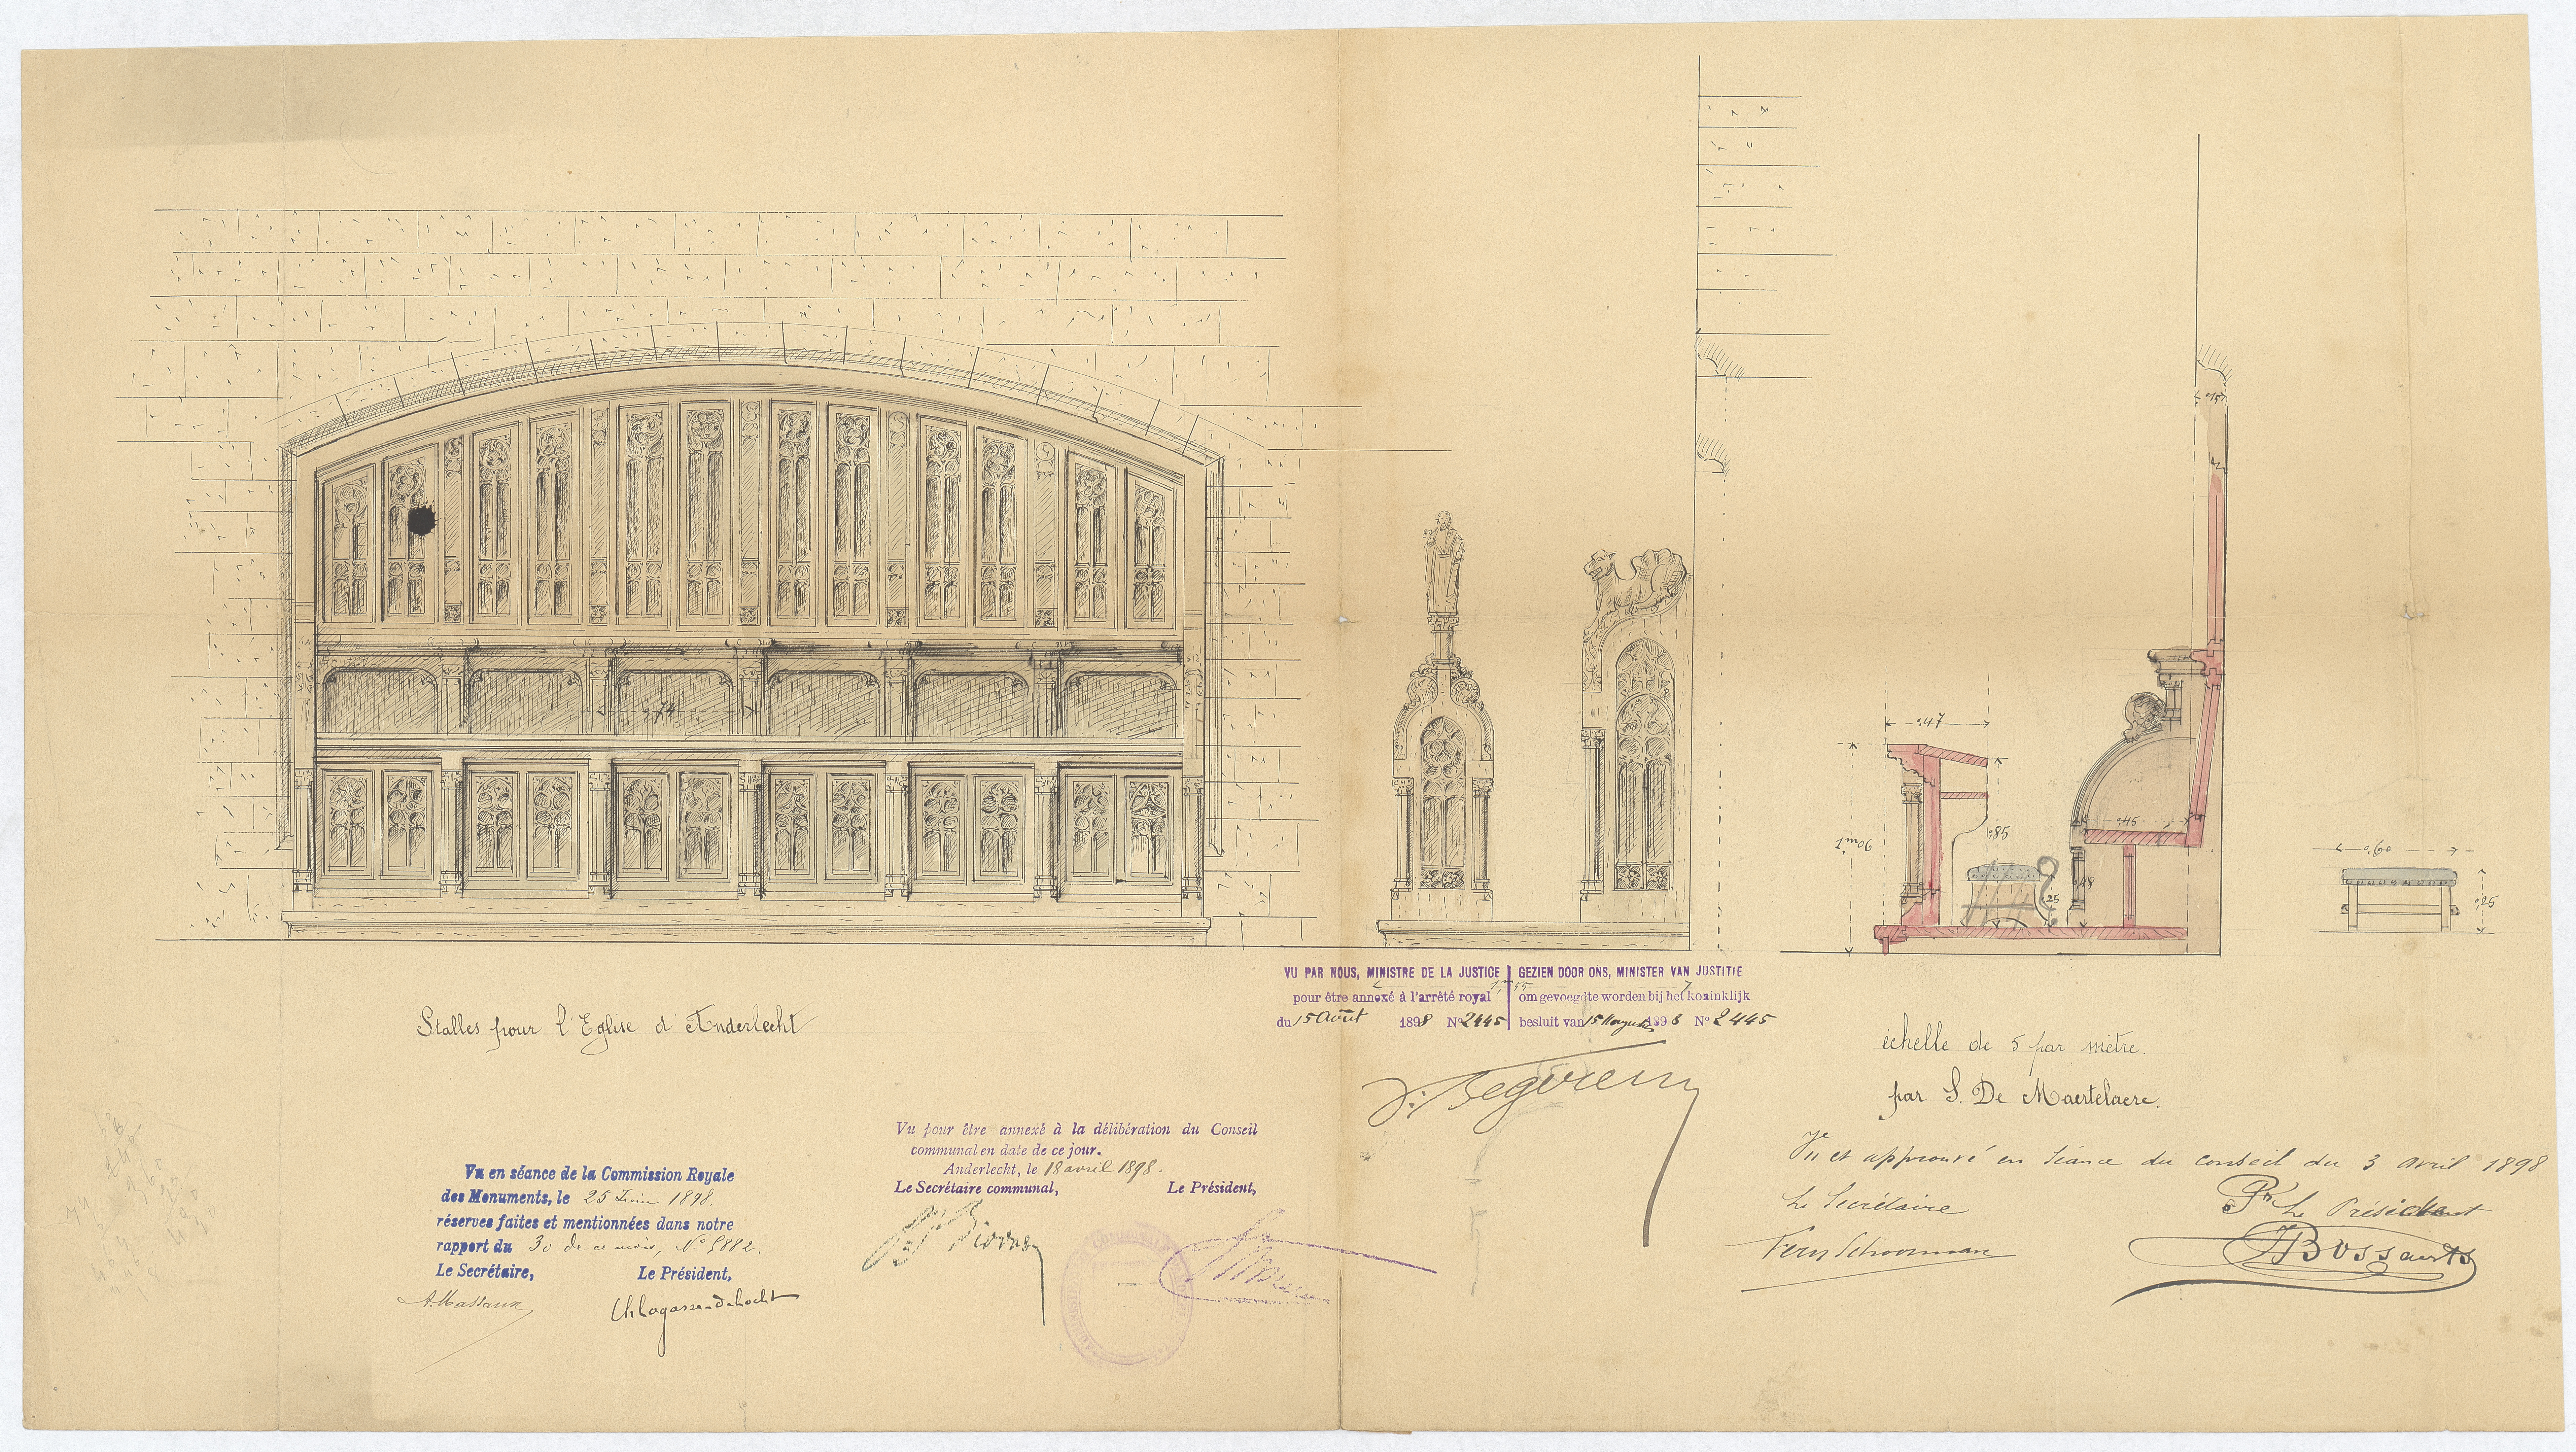 ,74
,15
,47
1m06
,85
,45
,48
,25
,60
,25
Stalles pour l'Eglise d'Anderlecht
VU PAR NOUS, MINISTRE DE LA JUSTICE
pour être annexé à l'arrêté royal
du 15 Août 1898 No 2445
GEZIEN DOOR ONS, MINISTER VAN JUSTITIE
om gevoegd te worden bij het koninklijk
besluit van 15 Augustus 1898 No 2445
V. Begerem
échelle de 5 par mètre.
par S. De Maertelaere.
Vu et approuvé en séance du conseil du 3 avril 1898
Le Secrétaire
Fern Schoonman
Pr Le Président
Bossaerts
Vu pour être annexé à la délibération du Conseil
communal en date de ce jour.
Anderlecht, le 18 avril 1898.
Le Secrétaire communal, Le Président,
Vu en séance de la Commission Royale
des Monuments, le 25 Juin 1898.
réserves faites et mentionnées dans notre
rapport du 30 de ce mois, No 5882.
Le Secrétaire, Le Président,
A. Massaux Ch. Lagasse-de Locht